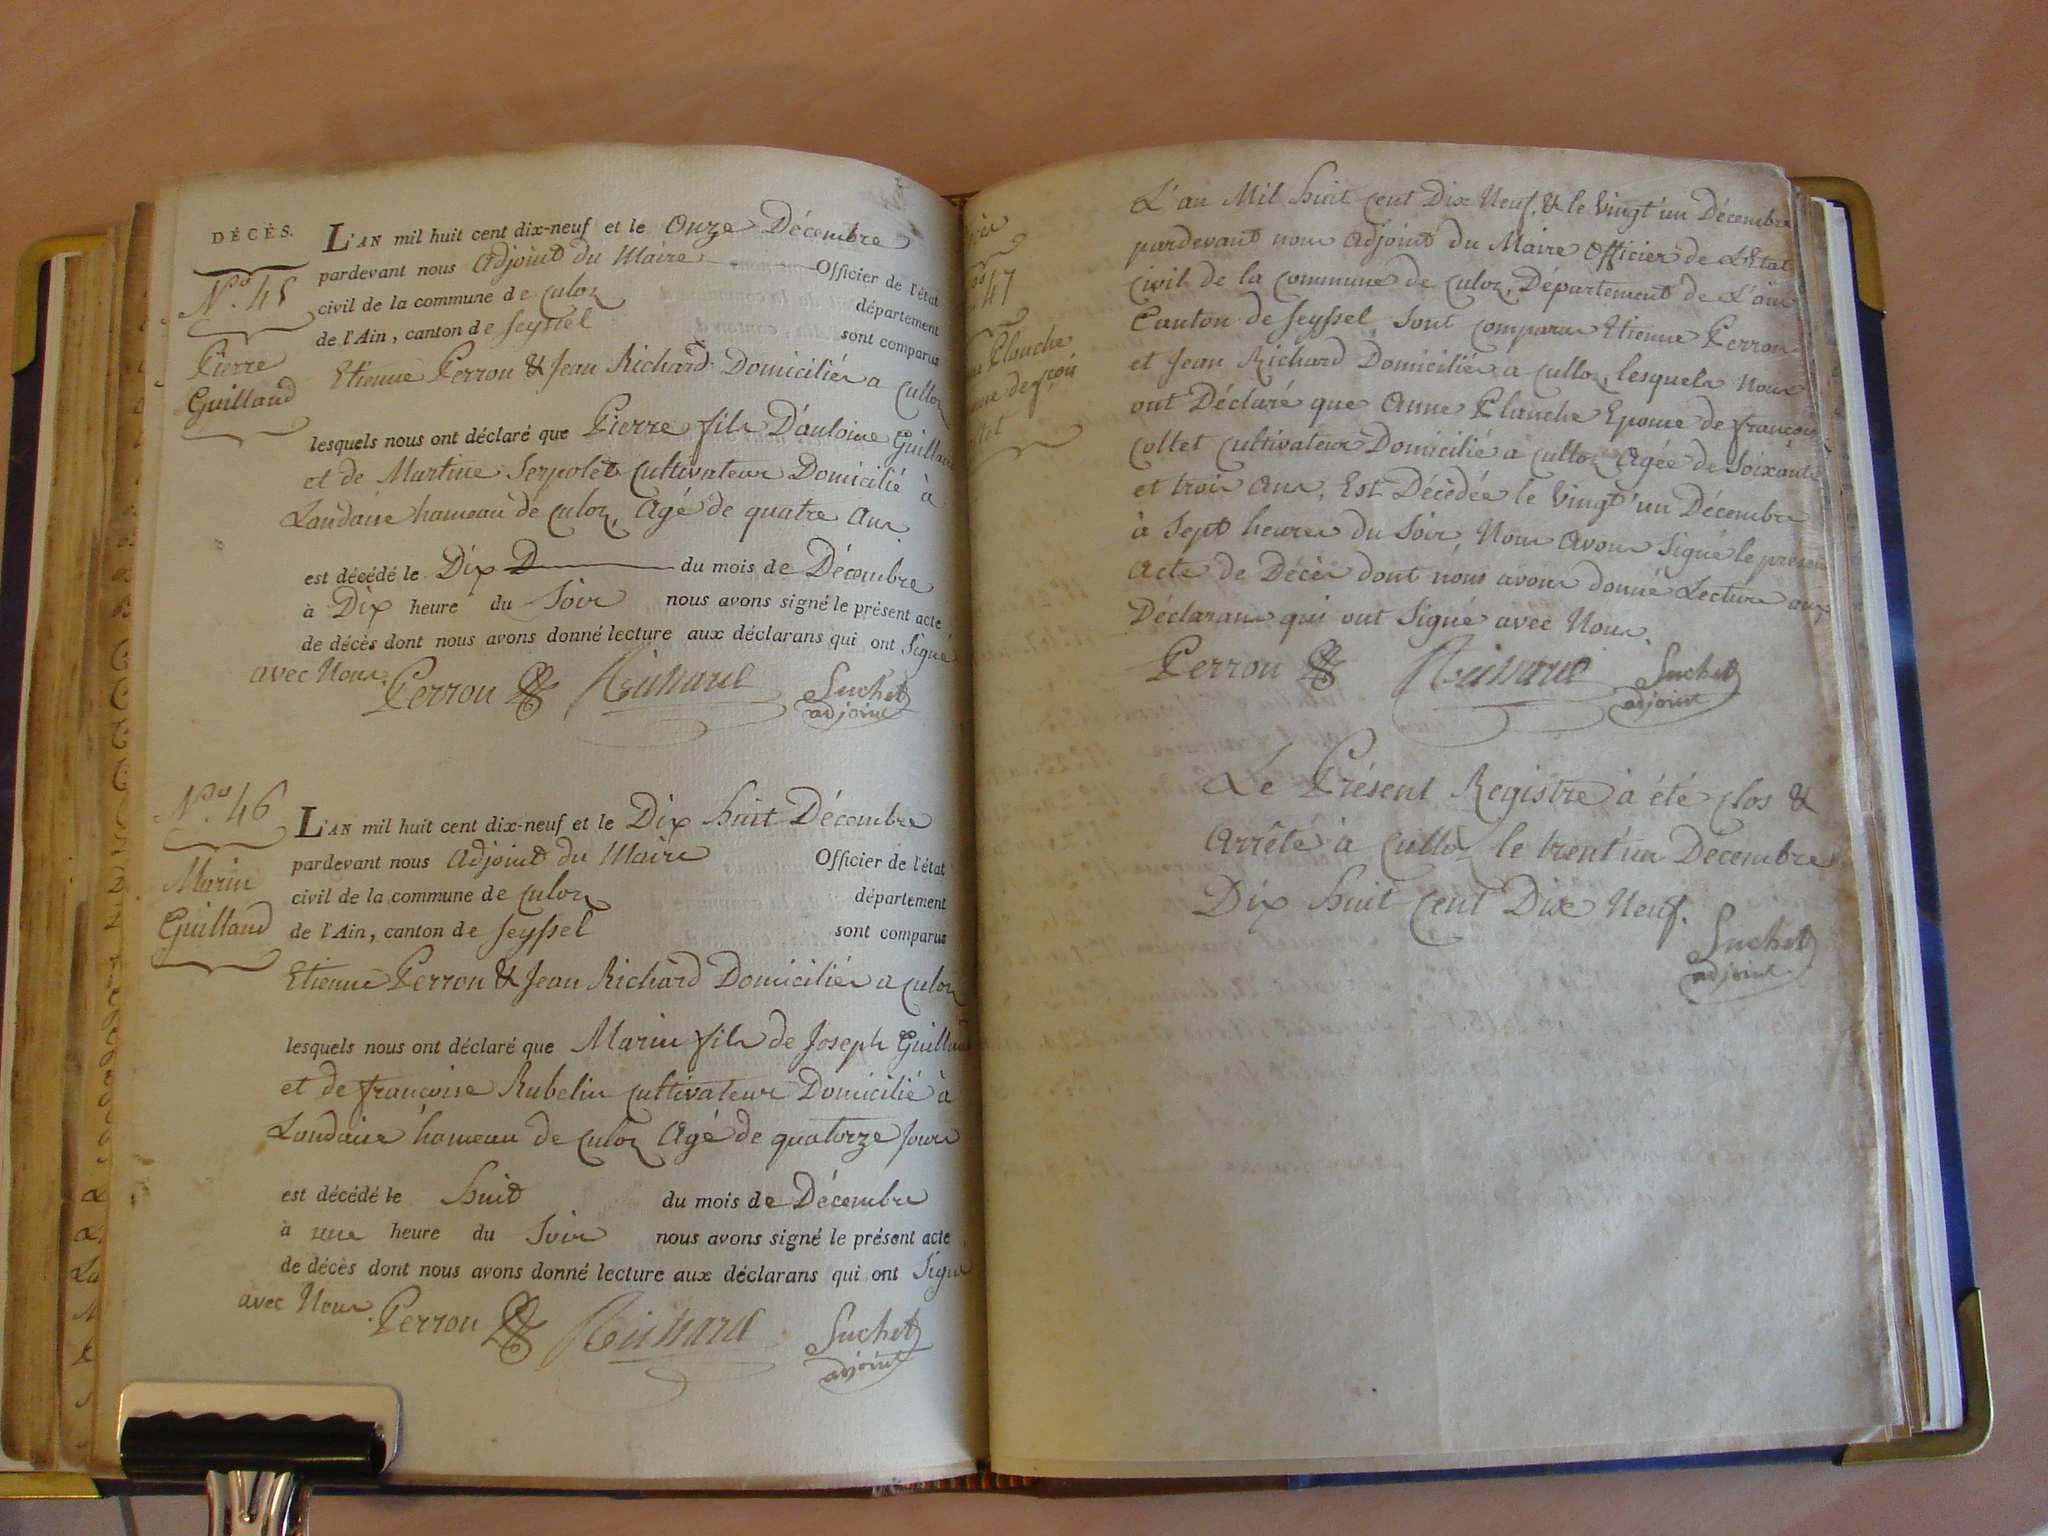 DÉCÈS.
N.° 45
Pierre
Guilland
L'AN mil huit cent dix-neuf et le Onze Décembre
pardevant nous Adjoint du Maire Officier de l'état
civil de la commune de Culoz département
de l'Ain, canton de Seyssel sont comparus
Etienne Perron & Jean Richard Domiciliés a Culloz
lesquels nous ont déclaré que Pierre fils D'antoine Guilland
et de Martine Serpolet Cultivateur Domicilié à
Landaise hameau de Culoz, Agé de quatre Ans
est décédé le Dix D du mois de Décembre
à Dix heure du Soir nous avons signé le présent acte
de décès dont nous avons donné lecture aux déclarans qui ont Signé
avec Nous. Perron Richard Suchet
adjoint
N.° 46
Marin
Guilland
L'AN mil huit cent dix-neuf et le Dix huit Décembre
pardevant nous Adjoint du Maire Officier de l'état
civil de la commune de Culoz département
de l'Ain, canton de Seyssel sont comparus
Etienne Perron & Jean Richard Domiciliés a Culoz
lesquels nous ont déclaré que Marin fils de Joseph Guilland
et de françoise Rubelin Cultivateur Domicilié à
Landaise hameau de Culoz Agé de quatorze Jours
est décédé le huit du mois de Décembre
à une heure du Soir nous avons signé le présent acte
de décès dont nous avons donné lecture aux déclarans qui ont Signé
avec Nous. Perron Richard Suchet
adjoint
47
Planche
L'an Mil huit Cent Dix Neuf, & le Vingt'un Décembre
pardevant nous Adjoint du Maire Officier de L'Etat
Civil de la Commune de Culoz, Département de L'ain
Canton de Seyssel, Sont comparus Etienne Perron
et Jean Richard Domiciliés a Culloz, lesquels Nous
ont Déclaré que Anne Planche Epouse de françois
Collet Cultivateur Domicilié à Culloz Agée de Soixante
et trois Ans, Est Décédée le Vingt'un Décembre
à Sept heures du Soir, Nous Avons Signé le présent
Acte de Décès dont nous avons donné Lecture aux
Déclarans qui ont Signé avec Nous.
Perron Richard Suchet
adjoint
Le Présent Registre à été Clos &
Arrêté à Culloz le trent'un Décembre
Dix huit Cent Dix Neuf.
Suchet
adjoint